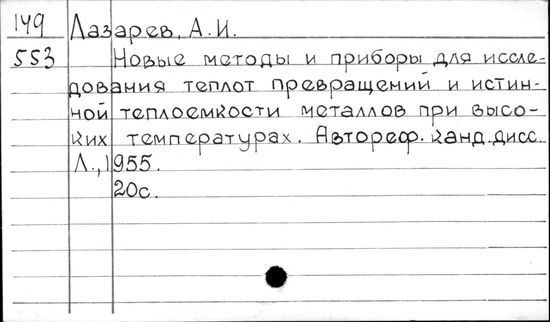 149 Лазарев, А.И.
553 Новые методы и приборы для иссле-
дования теплот превращений и истин-
ной теплоемкости металлов при высо-
ких температурах. Автореф. канд. дисс.
Л., 1955.
20с.